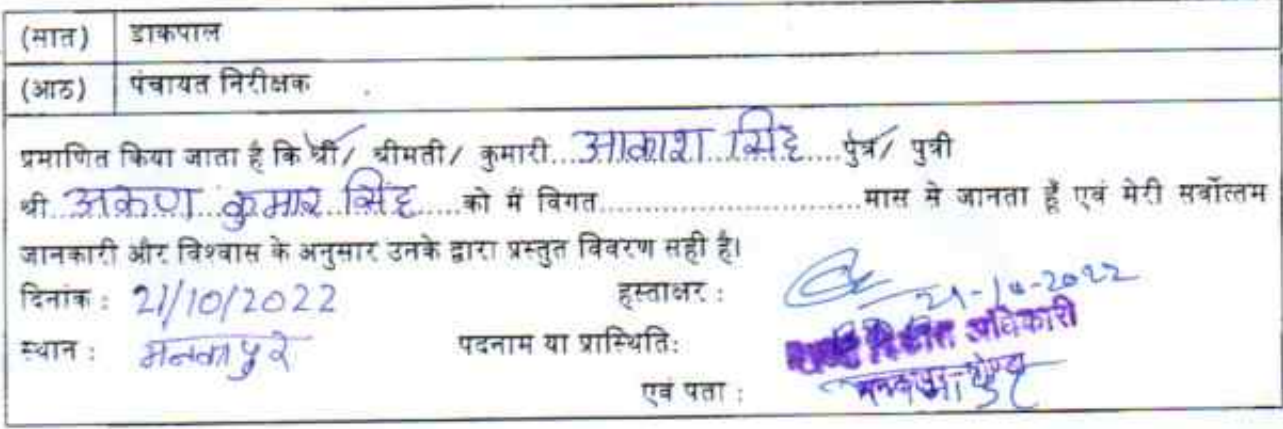 (सात) डाकपाल
(आठ) पंचायत निरीक्षक
प्रमाणित किया जाता है कि श्री/ श्रीमती/ कुमारी...आकाश सिंह....पुत्र/ पुत्री
श्री..अरूण कुमार सिंह.....को मैं विगत..............................मास से जानता हूँ एवं मेरी सर्वोत्तम
जानकारी और विश्वास के अनुसार उनके द्वारा प्रस्तुत विवरण सही है।
दिनांक : 21/10/2022 हस्ताक्षर : 21-10-2022
स्थान : मनकापुर पदनाम या प्रास्थिति: विकास अधिकारी
एवं पता : मनकापुर-गोण्डा